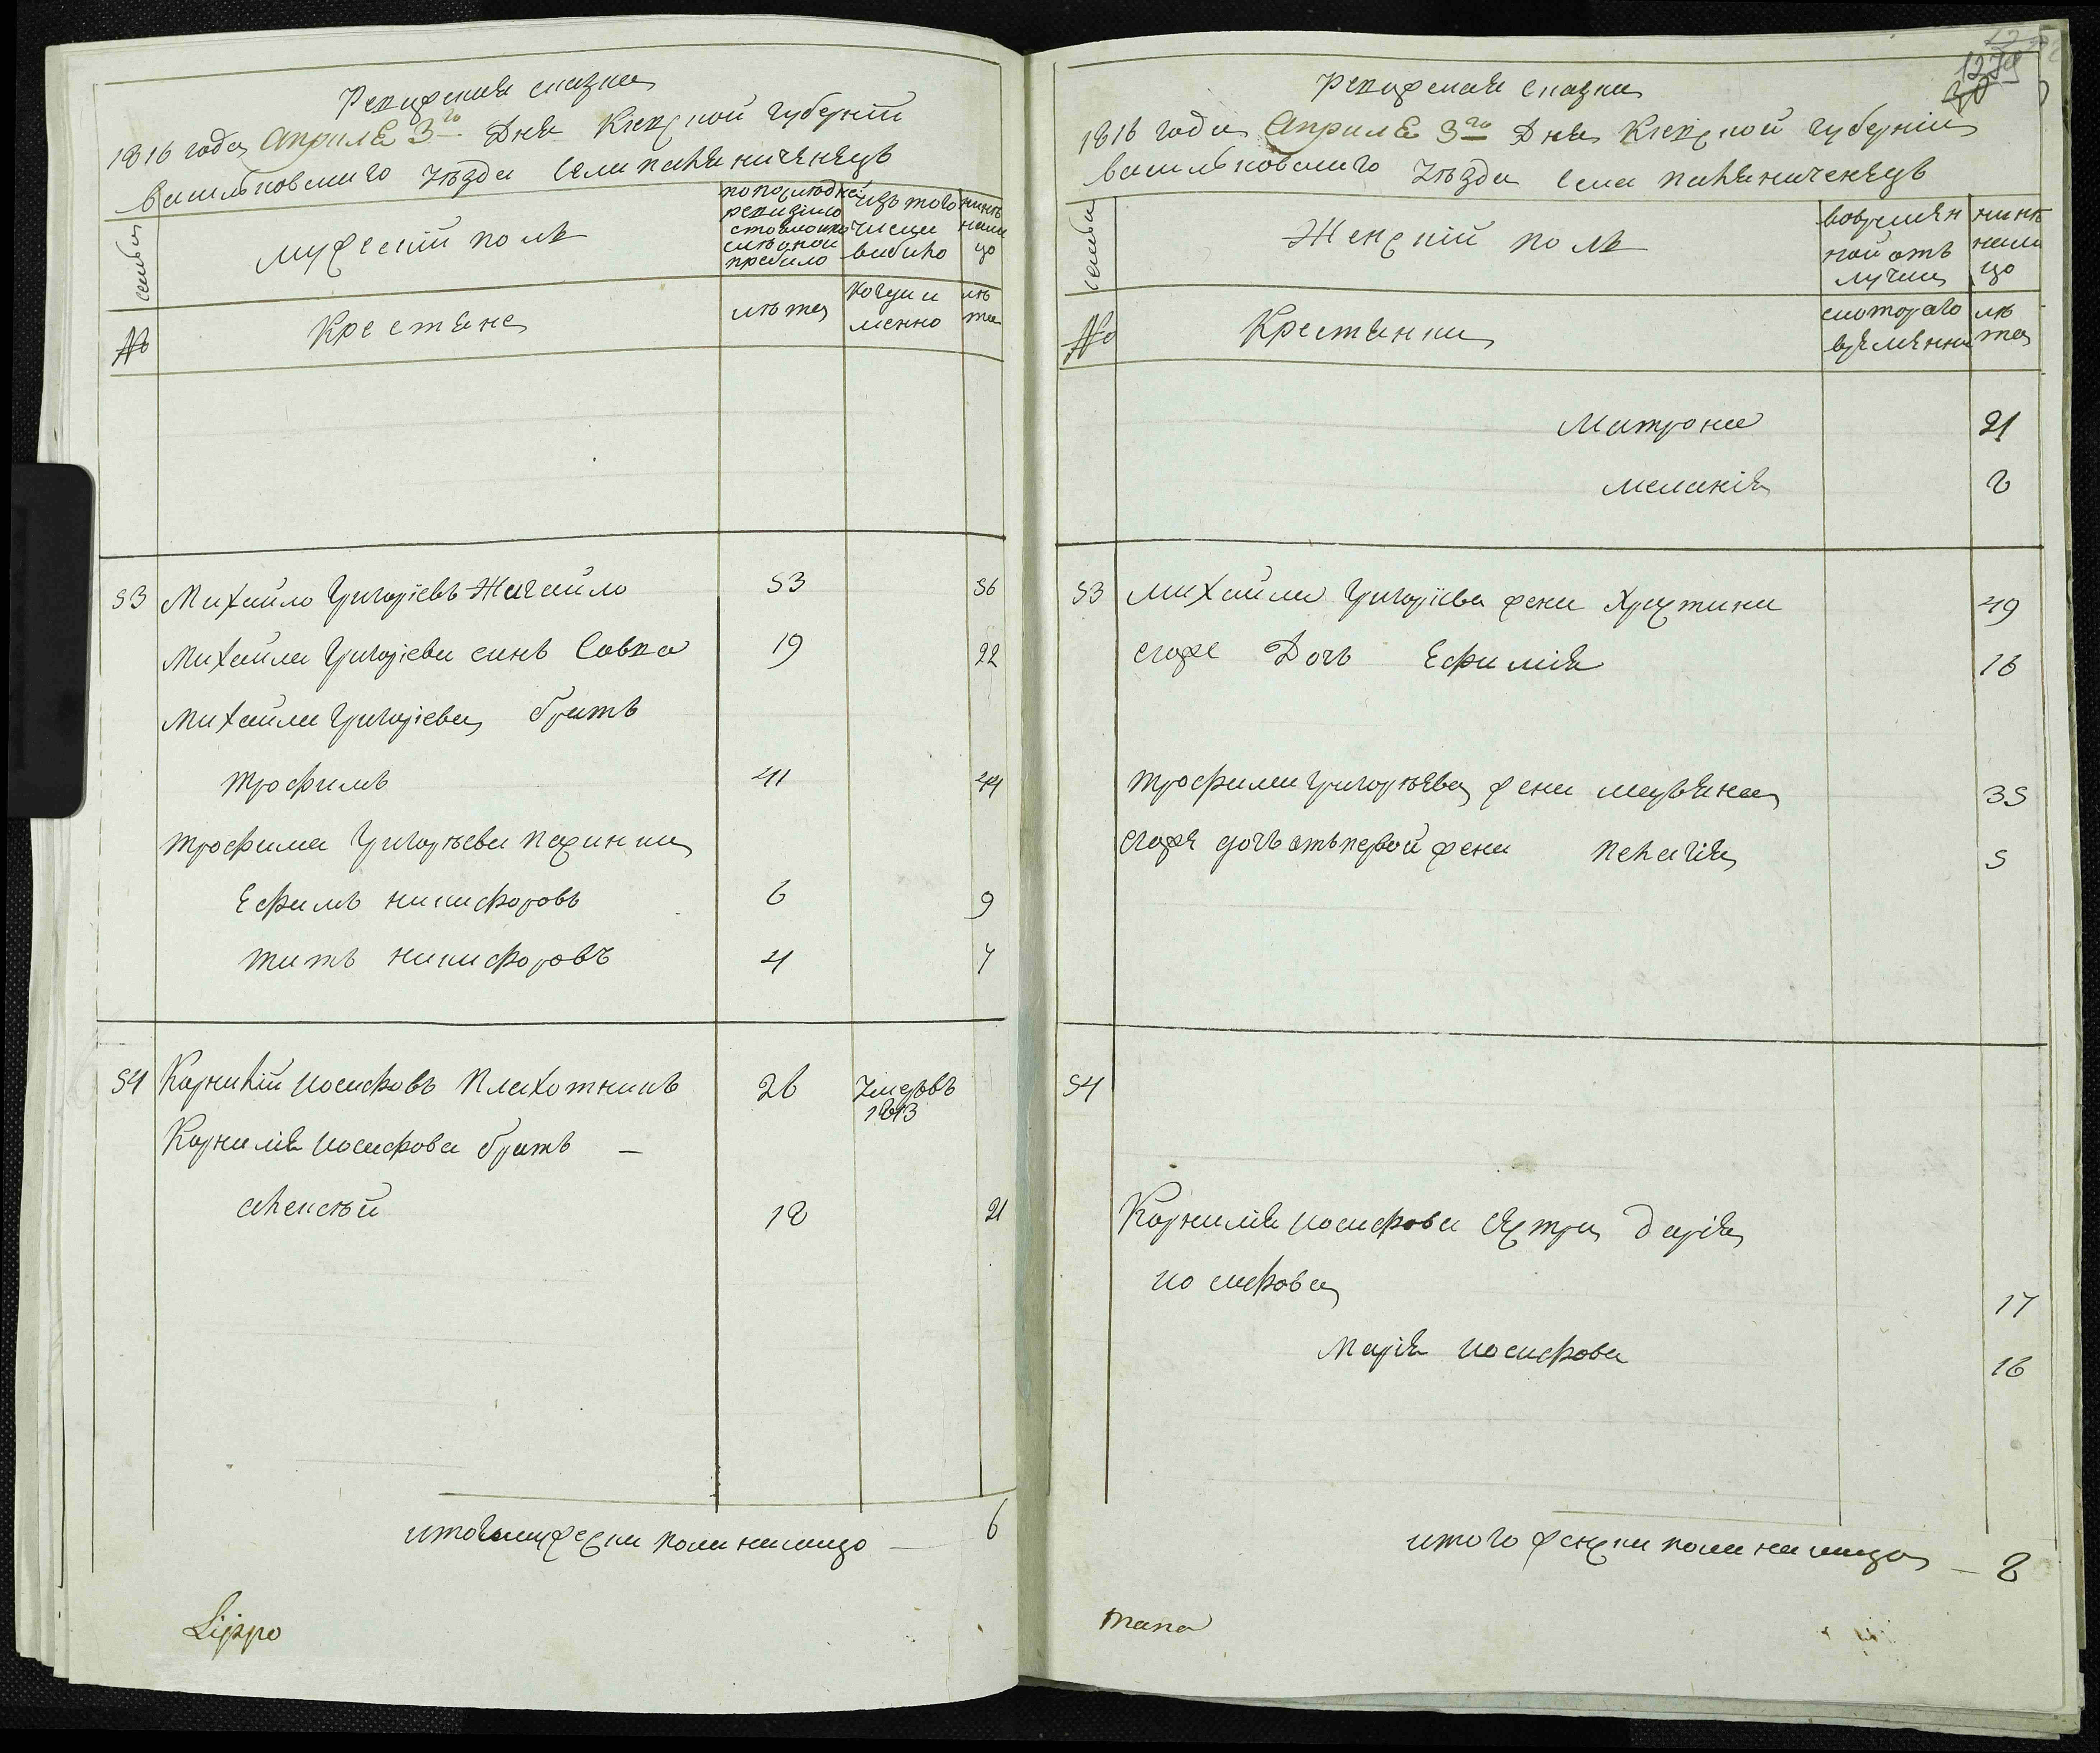 Ревизская сказка
1816 года Апреля 3го Дня Киевской губернии
васильковского уезда села палениченец
семьи
мужеский пол
по последней ревизии состояло и после оной прибыло
из того числа выбыло
ныне налицо
№
Крестяне
лета
когда именно
лета
53 Михайло Григориевъ Жигайло 53 56
Михайла Григориева синъ Савка 19 22
Михайла Григориева братъ
трофимъ 41 44
трофима Григорьева пасинки
Ефимъ никифоровъ 6 9
титъ никифоровъ 4 7
54 Корнилий иосифовъ Плахотникъ 26 Умеръ въ 1813
Корнилия иосифова братъ –
алексей 18 21
итого мужеска пола налицо – 6
Ревизская сказка
1816 года Апреля 3го Дня Киевской губернии
васильковского уезда села палениченец
семьи
Женский пол
во временной отлучки
ныне налицо
№
Крестянки
с которого времени
лета
Матрона 21
мелания 8
53 михайла Григориева жена Христина 49
егоже Дочь Ефимия 16
трофима григорьева жена 35
егоже дочь от первой жены пелагия 5
54
Корнилия иосифова сестра дария
иосифова 17
Мария иосифова 16
итого женска пола налицо – 8